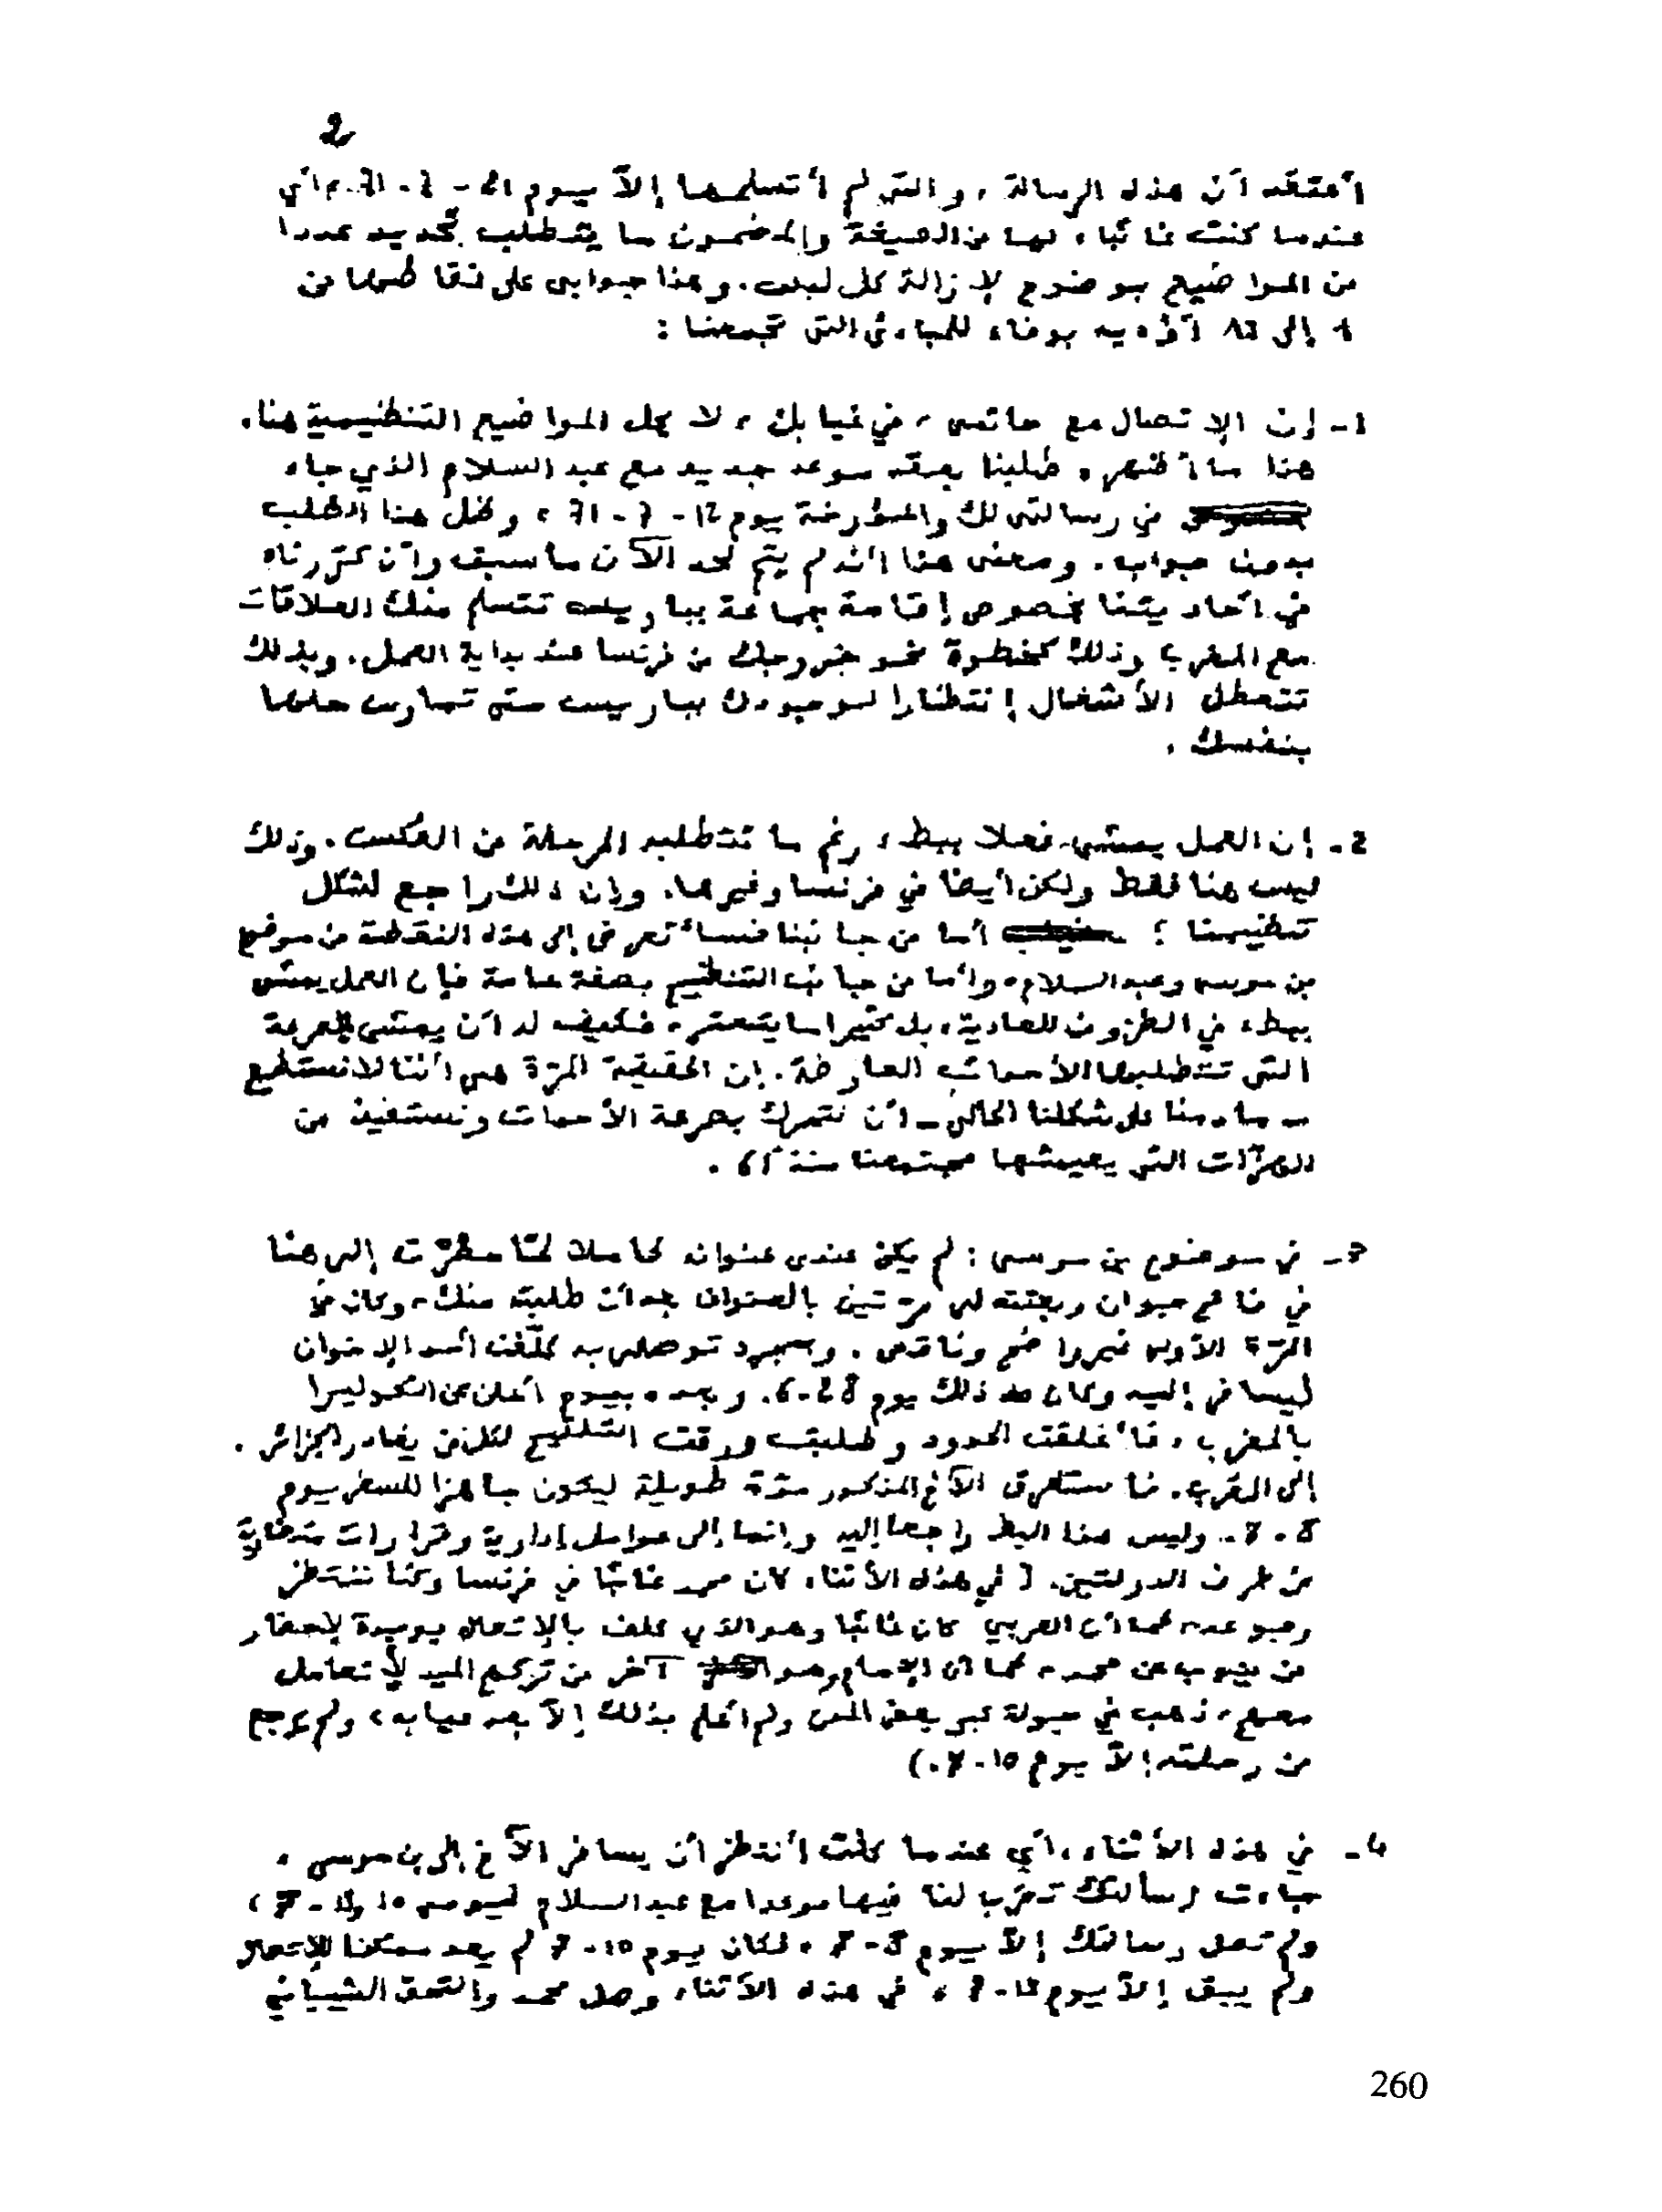 2
أعتقد أن هذه الرسالة، والتي لم أتسلمها إلاّ يوم
عندما كنت غائبا، لها من الصيغة والمضمون ما يتطلب تحديد عددا
من المواضيع بوضوح لإزالة كل لبس. وهذا جوابي على نقاطها من
1 إلى أؤديه بوفاء للمبادئ التي تجمعنا :
1- إن الإتصال مع حاتمي، في غيابك، لا يحل المواضيع التنظيمية هنا.
هذا ما أظهره طلبنا بعقد موعد جديد مع عبد السلام الذي جاء
في رسالتي لك والمؤرخة يوم 12 - 7 - 71، وظل هذا الطلب
بدون جواب. ومعنى هذا أنه لم يتم لحد الآن ما سبق وأن كرّرناه
في أحاديثنا بخصوص إقامة جماعة بباريس تتسلم منك العلاقات
مع المغرب وذلك كخطوة نحو خروجك من فرنسا عند بداية العمل. وبذلك
تتعطل الأشغال إنتظارا لوجودك بباريس حتى تمارس حلها
بنفسك.
2- إن العمل يمشي فعلا ببطء رغم ما تتطلبه المرحلة من العكس. وذلك
ليس هنا فقط ولكن أيضا في فرنسا وغيرها. وإن ذلك راجع لشكل
تنظيمنا ؛ أما من جانبنا فسأتعرض إلى هذه النقطة من موضوع
بن موسى وعبد السلام. وأما من جانب التنظيم بصفة عامة فإن العمل يمشي
ببطء في الظروف العادية، بل كثيرا ما يتعثر، فكيف له أن يمشي بالسرعة
التي تتطلبها الأحداث العارضة. إن الحقيقة المرّة هي أننا لا نستطيع
- ما دمنا على شكلنا الحالي - أن نتحرك بسرعة الأحداث ونستفيد من
الهزّات التي يعيشها مجتمعنا منذ
3- في موضوع بن موسى : لم يكن عندي عنوانه كاملا لمّا حضرت إلى هنا
في فاتح جوان وبعثته لي مرتين بالعنوان بعد أن طلبته منك، وكان في
المرّة الأولى غير واضح وناقص. وبمجرد توصلي به كلّفت أحد الإخوان
ليسافر إليه وكان ذلك يوم 28-6. وبعده بيوم أعلن عن الكوليرا
بالمغرب، فأغلقت الحدود وطلبت ورقة التلقيح لكل من يغادر الجزائر
إلى المغرب. فاستغرق الأخ المذكور مدّة طويلة ليكون جاهزا للسفر يوم
8 - 7. وليس هذا البطء راجعا إليه وإنما إلى عوامل إدارية وقرارات
من طرف الدولتين. ( في هذه الأثناء كان محمد غائبا في فرنسا وكنا ننتظر
رجوعه، كما أن العربي كان غائبا وهو الذي كلف بالإتصال
من ينوب عن محمد، كما أن الإمام وهو آخر من تركهم السيد لأتعامل
معهم، ذهب في جولة عبر بعض المدن ولم أعلم بذلك إلاّ بعد غيابه، ولم يرجع
من رحلته إلاّ يوم 15-7.)
4- في هذه الأثناء، أي عندما كنت أنتظر أن يسافر الأخ إلى بن موسى،
جاءت رسالتك تضرب لنا فيها موعدا مع عبد السلام ليومي
ولم تصل رسالتك إلاّ يوم 8-7، فكان يوم 10-7 لم يعد ممكنا للإتصال
ولم يبق إلاّ يوم في هذه الأثناء وصل محمد والتحق الشيباني
260